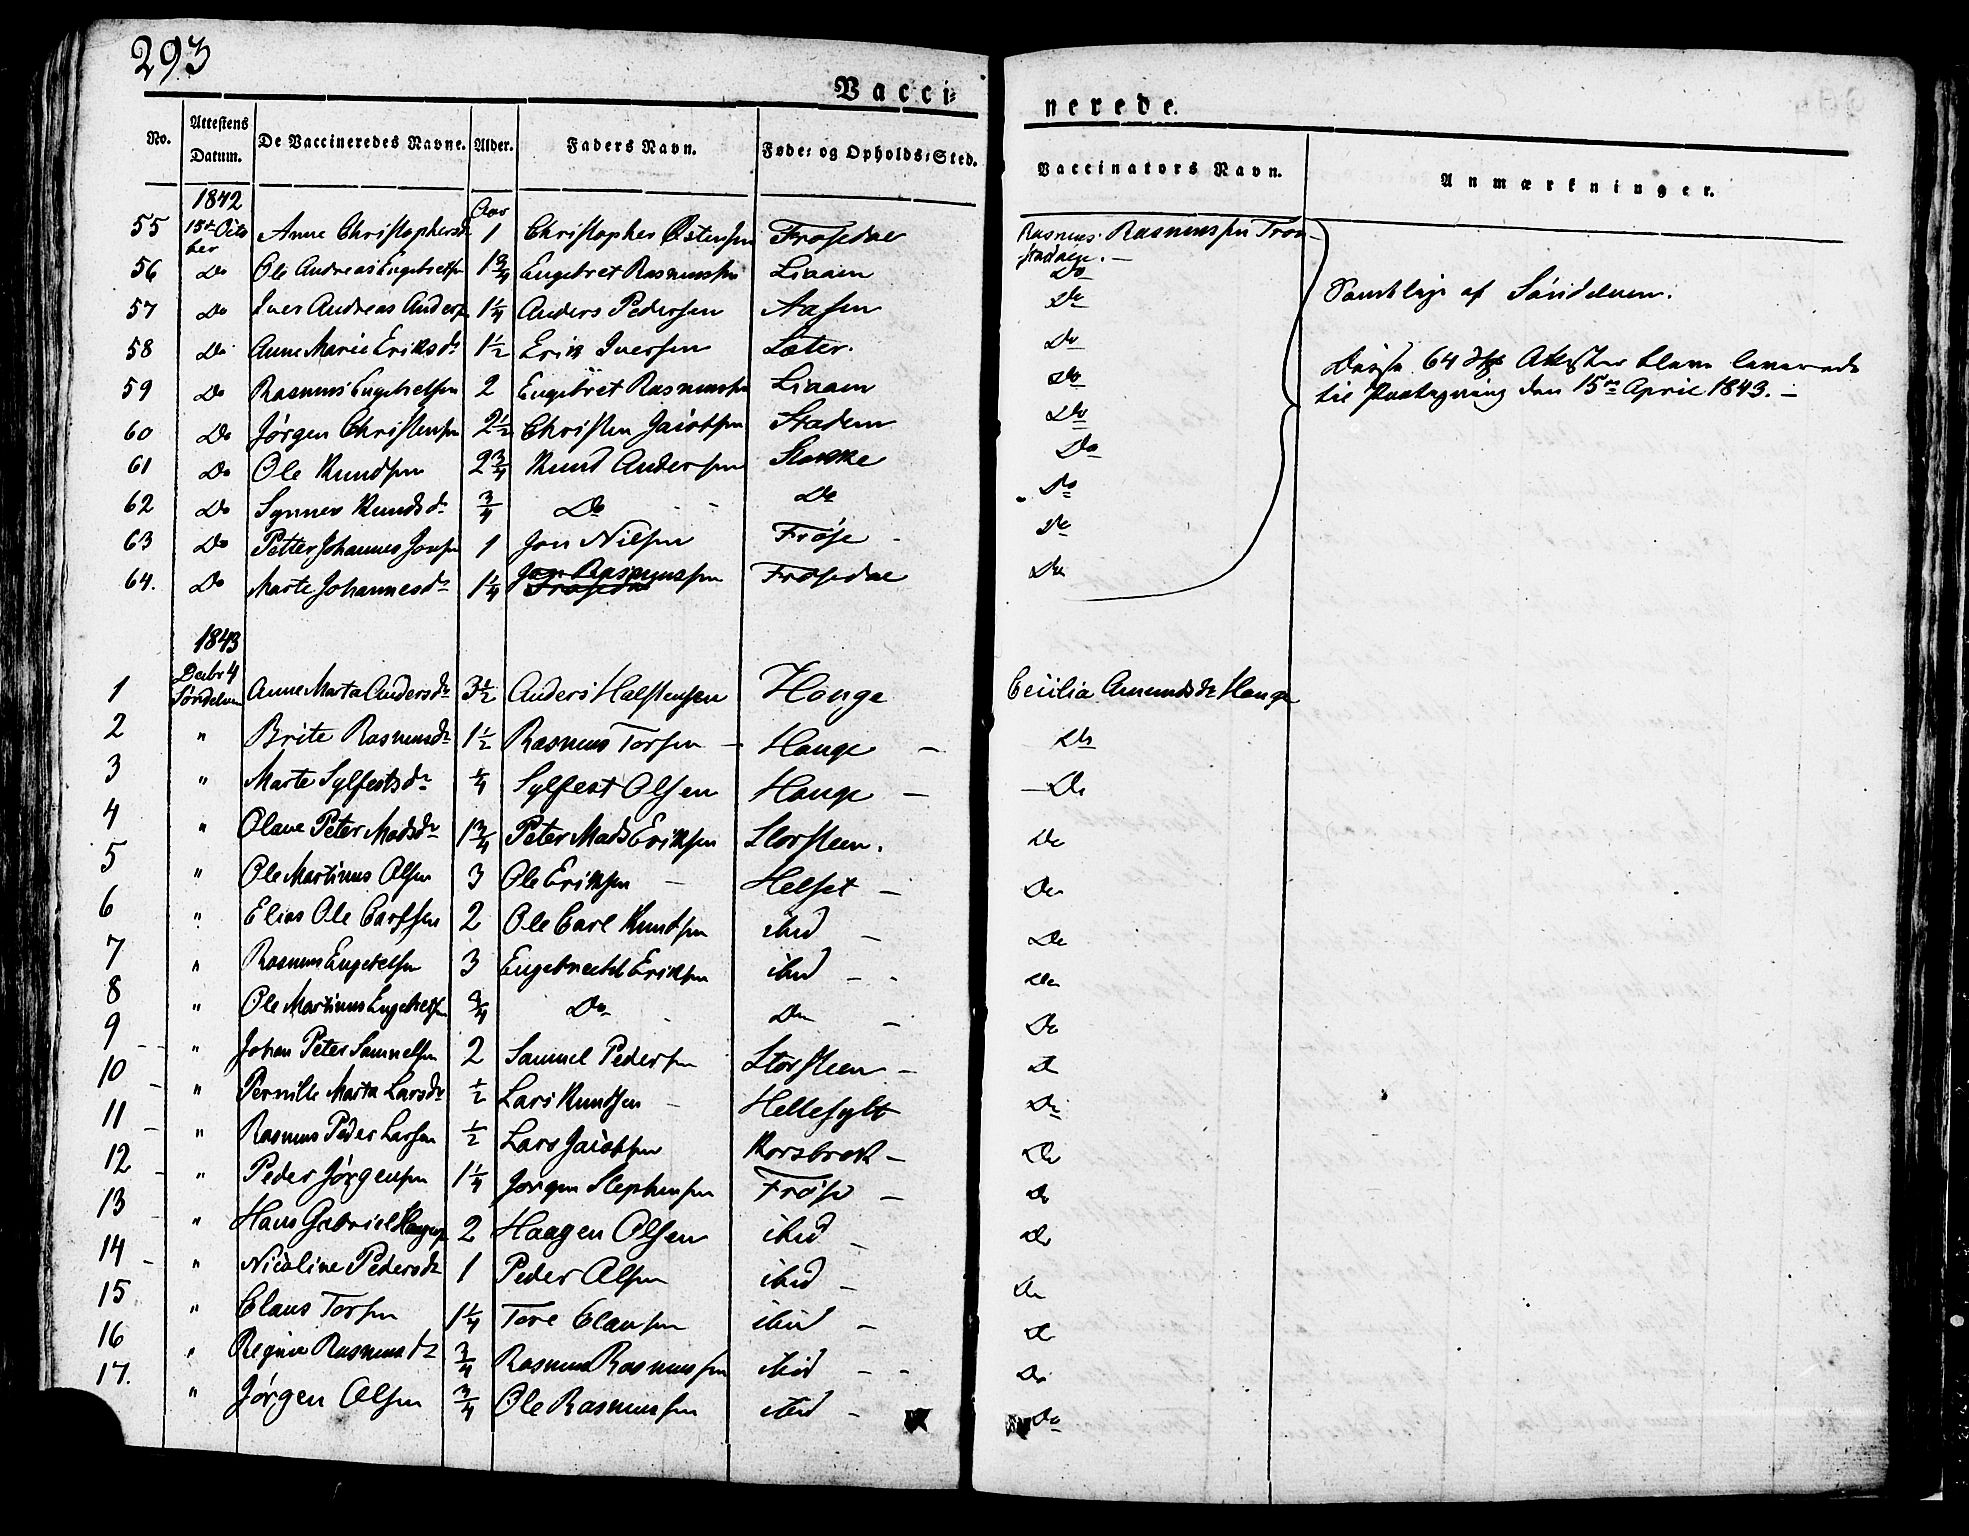 293
Vacci-
nerede.
No. Attestens Datum. De Vaccineredes Navne. Alder. Faders Navn. Føde- og Opholds-Sted. Vaccinators Navn. Anmærkninger.
1842
Aar
55 15de Octo ber Anne Christophersdr 1 Christopher Østensen Frøsedal Rasmus Rasmussen
56 Do Ole Andreas Engebretsen 1 3/4 Engebret Rasmussen Liaaen Do
57 Do Iver Andreas Anders 1 1/4 Anders Pedersen Aasen Do
Samtlige af
58 Do Anne Marie Eriksdr 1 1/2 Erik Iversen Sæter. Do
59 Do Rasmus Engebretsen 2 Engebret Rasmussen Liaaen Do
Disse 64 Attester bleve leverede
til Provtegning den 15de April 1843. –
60 Do Jørgen Christensen 2 1/2 Christen Jacobsen Stadem Do
61 Do Ole Knudsen 2 3/4 Knud Andersen Do
62 Do Synnev Knudsdr 3/4 Do Do Do
63 Do Petter Johannes Jonsen 1 Jon Nilsen Frøse Do
64. Do Marte Johannesdr 1 1/4 Rasmussen Frøsedal Do
1843
1 Decbr 4 Anne Marta Andersdr 3 1/2 Anders Halstensen Houge Cecilia Amundsdr Hauge
2 " Brite Rasmusdr 1 1/2 Rasmus Torsen – Hauge – Do
3 " Marte Sylfestsdr 1/4 Sylfest Olsen Hauge – Do
4 " Olave Peter Madsdr 1 3/4 Peter Mads Eriksen Storsteen. Do
5 " Ole Martinus Olsen 3 Ole Eriksen – Helset – Do
6 " Elias Ole Carlsen 2 Ole Carl Knudsen ibid – Do
7 " Rasmus Engebretsen 3 Engebrecht Eriksen ibid – - Do
8 " Ole Martinus Engebretsen 3/4 Do Do – Do
9 " Johan Peter Samuelsen 2 Samuel Pedersen Storsteen – Do
10 " Pernille Marta Larsdr 1/2 Lars Knudsen – Hellesylt Do
11 " Rasmus Peder Larsen 1/2 Lars Jacobsen Korsbrek – Do
12 " Peder Jørgensen 1 1/4 Jørgen Stephensen Frøse – Do
13 " Hans Gabriel Haagens 2 Haagen Olsen ibid – Do
14 " Nicoline Pedersdr 1 Peder Olsen ibid – Do
15 " Claus Torsen 1 1/4 Tore Clausen ibid – Do
16 " Regine Rasmusdr 3/4 Rasmus Rasmussen ibid – - Do
17. " Jørgen Olsen 3/4 Ole Rasmussen ibid – Do